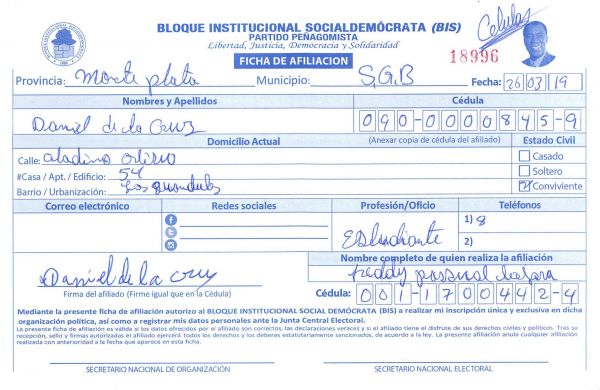 BLOQUE INSTITUCIONAL SOCIALDEMÓCRATA (BIS)
PARTIDO PEÑAGOMISTA
Libertad, Justicia, Democracia y Solidaridad
FICHA DE AFILIACION
Celulas
18996
Provincia: Monte plata Municipio: S.G.B Fecha: 26 03 19
Nombres y Apellidos Cédula
Daniel de la Cruz 090-0000845-9
Domicilio Actual (Anexar copia de cédula del afiliado) Estado Civil
Calle:
#Casa / Apt. / Edificio: 54
Barrio / Urbanización: Los guandules
Casado
Soltero
Conviviente
Correo electrónico Redes sociales Profesión/Oficio Teléfonos
Estudiante
1) 8
2)
Nombre completo de quien realiza la afiliación
Daniel de la cruz
freddy pascual
Firma del afiliado (Firme igual que en la Cédula) Cédula: 001-1700442-4
Mediante la presente ficha de afiliación autorizo al BLOQUE INSTITUCIONAL SOCIAL DEMÓCRATA (BIS) a realizar mi inscripción única y exclusiva en dicha
organización política, así como a registrar mis datos personales ante la Junta Central Electoral.
La presente ficha de afiliación es válida si los datos ofrecidos por el afiliado son correctos, las declaraciones veraces y si el afiliado tiene el disfrute de sus derechos civiles y políticos. Tras su
recepción, sello y firmas autorizadas el afiliado ejercerá todos los derechos y los deberes estatutariamente sancionados, de acuerdo a la ley. La presente afiliación anula cualquier afiliación
realizada con anterioridad a la fecha que aparece en esta ficha.
SECRETARIO NACIONAL DE ORGANIZACIÓN SECRETARIO NACIONAL ELECTORAL